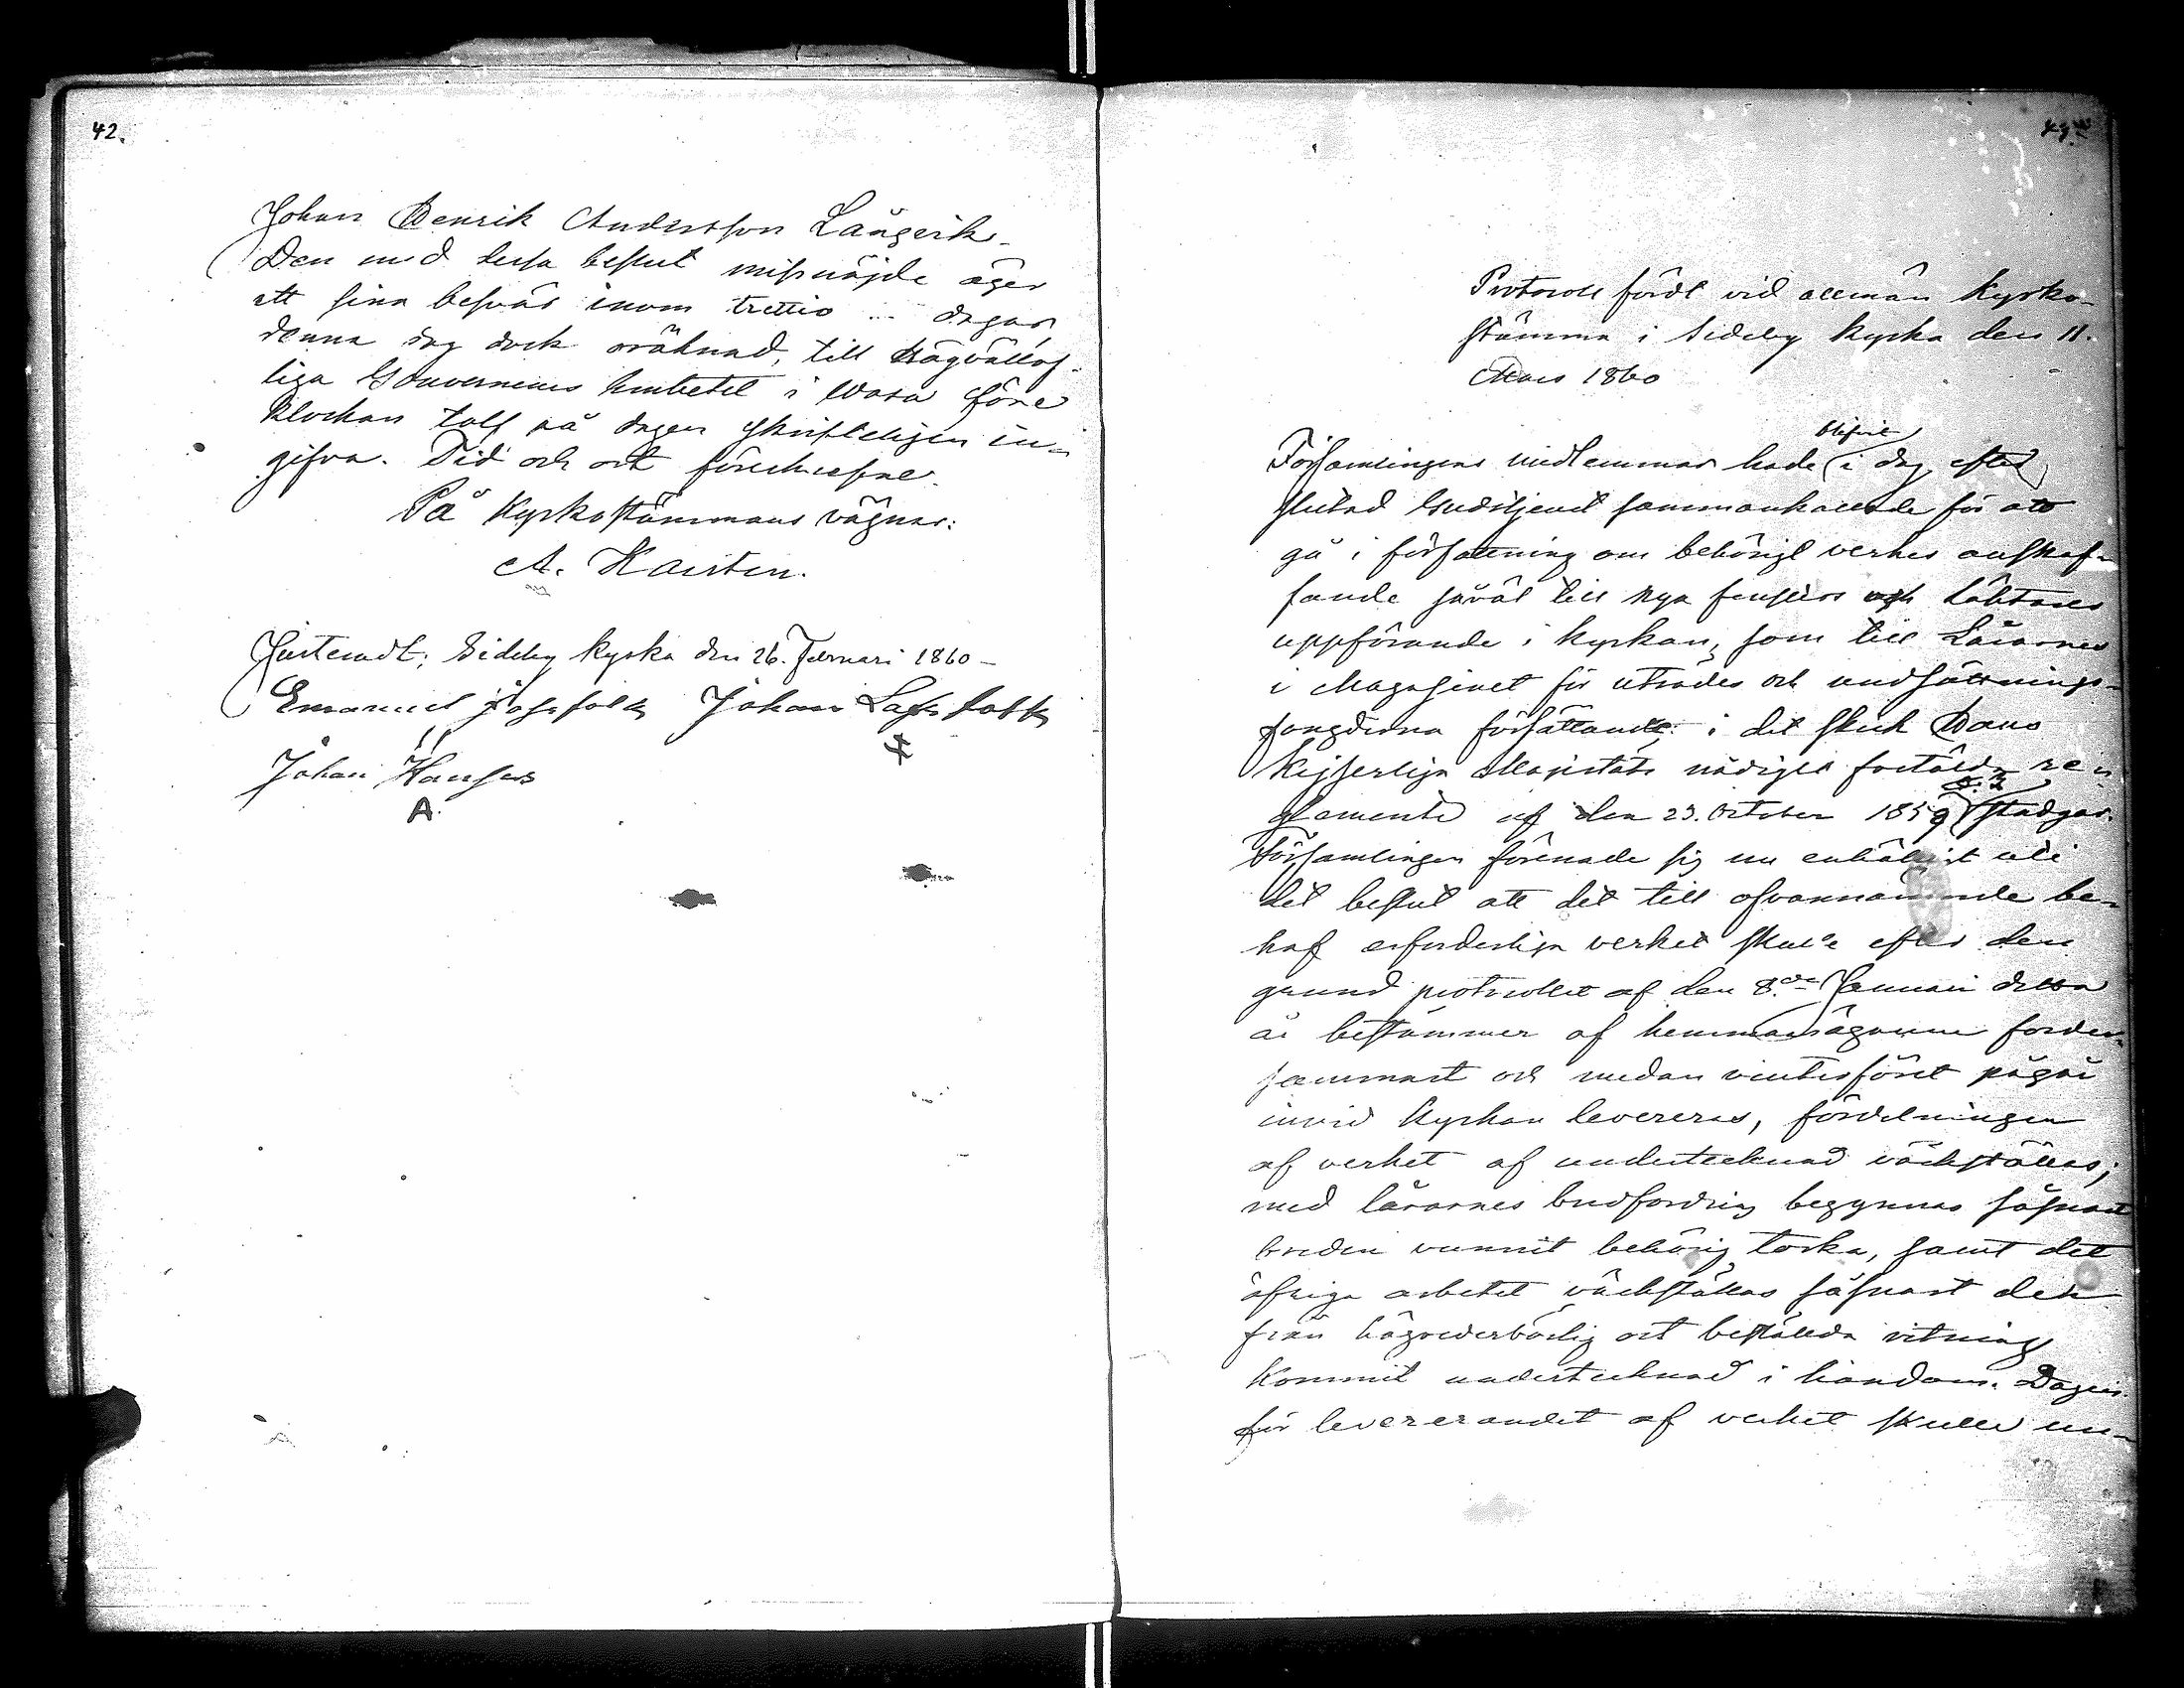 42.
Johan Henrik Andersson Långerik.
Den med dessa beslut missnöjde äger
att sina besvär inom trettio dagar,
denna dag dock oräknad, till Högvällof-
liga Gouvernements Embetet i Wasa före
klockan tolf på dagen skrifteligen in-
gifva. Tid och ort föreskrefne.
På Kyrkostämmans vägnar:
A. Karsten.
Justeradt; Sideby kyrka den 26. Februari 1860
Emanuel Josfolk Johan
Johan Hansus
A.
Protocoll fördt vid allmän kyrko-
stämma i Sideby kyrka den 11.
Mars 1860
Församlingens medlemmar hade blifvit i dag efter
slutad Gudstjenst sammankallade för att
gå i författning om behörigt verkes anskaf-
fande såväl till nya fenster och läktares
uppförande i kyrkan, som till Lårarnes
i Magasinet för utsädes och undsättnings-
fongderna försättande i det skick Hans
Kejserliga Majestäts nådigst fastälda re-
glemente af den 23. October 1859 stadgar.
Församlingen förenade sig nu enhälligt uti
det beslut att det till ofvannämnde be-
hof erforderliga verket skulle efter den
grund protocollet af den 8.de Januari detta
år bestämmer af hemmansägarne forder-
sammast och medan vinterföret pågår
invid kyrkan levereras, fördelningen
af verket af undertecknad värkställas;
med lårarnes brädfordring begynnas såsnart
bräden vunnit behörig torka, samt det
öfriga arbetet värkställas såsnart den
från högvederbörlig ort beställda ritning
kommit undertecknad i händom. Dagen
för levererandet af verket skulle un-